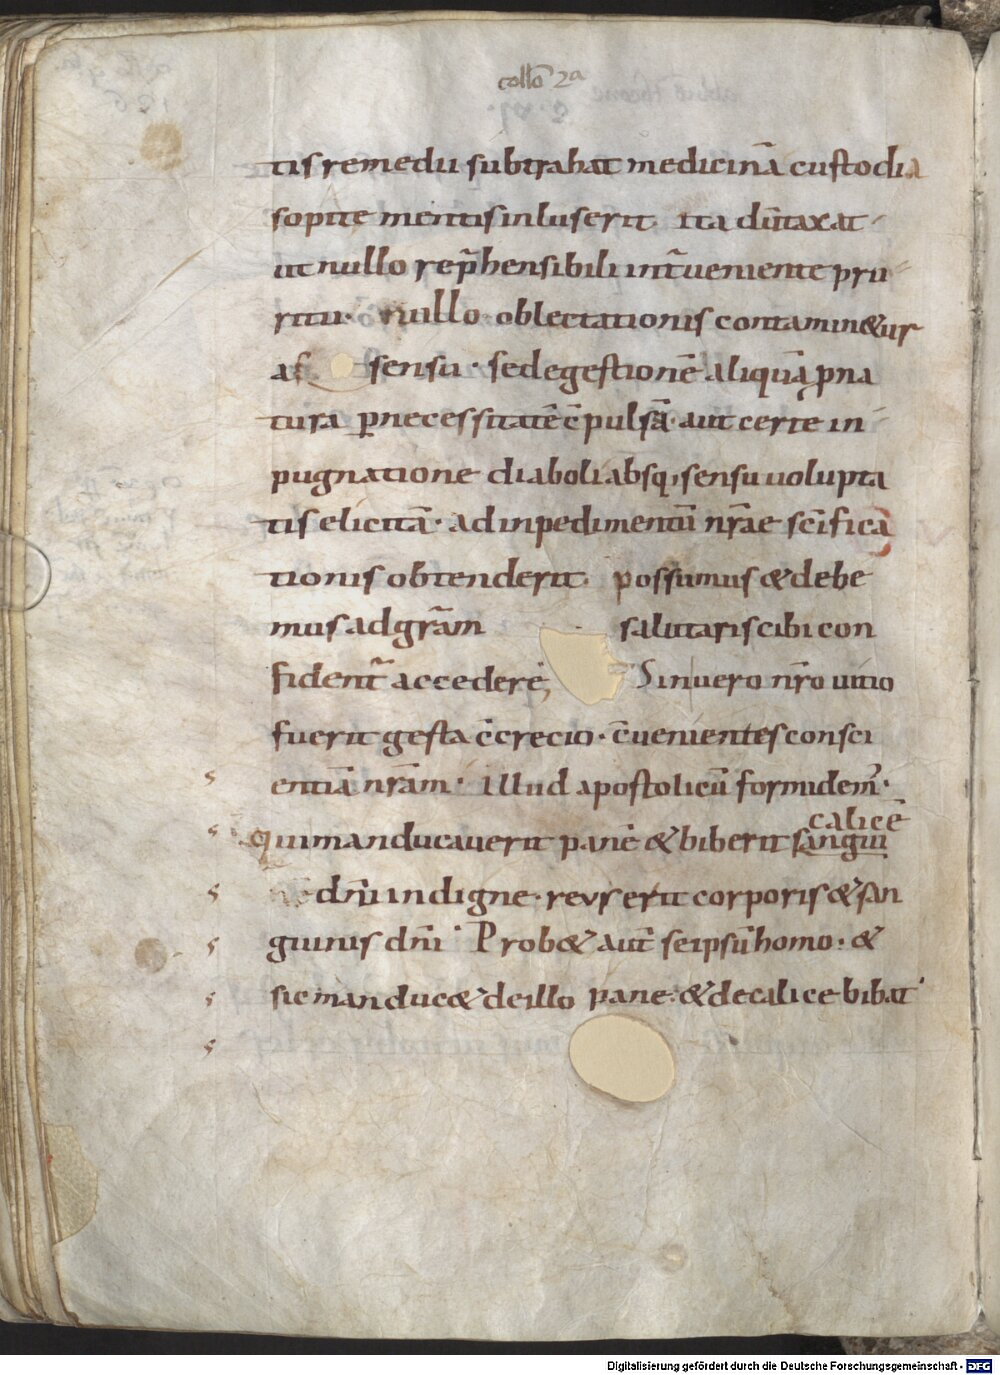 collo 2a
tis remedii subtrahat medicinā custodia
sopite mentis inluserit. ita dūtaxat
ut nullo rep̄hensibili int̄ueniente pru
ritu. nullo oblectationis contamin&ur
as sensu. sed egestionē aliquā p̱ na
tura ꝑ necessitatē c̄pulsā. aut certe in
pugnatione diaboli absq; sensu uolupta
tis elicitā. ad inpedimentū nr̄ae sc̄ifica
tionis obtenderit. possumus & debe
mus ad gr̄am salutaris cibi con
fident̄ accedere; Sin uero nr̄o uitio
fuerit gesta c̄crecio. c̄uenientes consci
entiā nr̄am. illud apostolicū formidem̄.
calicē
qui manducauerit panē & biberit sangui
dn̄i indigne. reus erit corporis & san
guinis dn̄i. Prob& aut̄ se ipsū homo. &
sic manduc& de illo pane. & de calice bibat.